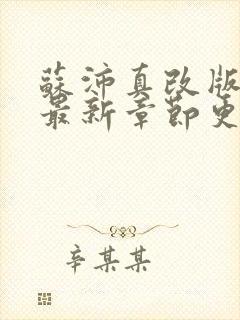 蘇沛真改版
最新章節更
辛某某